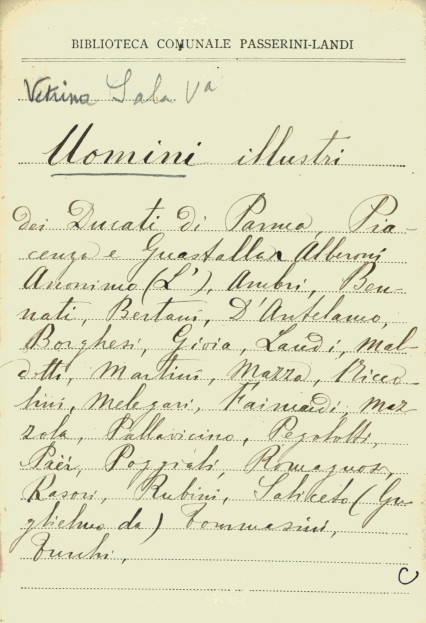 BIBLIOTECA COMUNALE PASSERINI-LANDI
Vetrina Sala Vª
Uomini illustri
dei Ducati di Parma, Pia-
cenza e Guastalla Alberoni
Anonimo (L'), Ambri, Ben-
nati, Bertani, D'Antelamo,
Borghesi, Gioia, Landi, Mal-
otti, Martini, Mazza, Picco-
lini, Melegari, Faimardi, Maz-
zola, Pallavicino, Pegolotti,
Päer, Poggiali, Romagnosi,
Rasori, Rubini, Saliceto (Gu-
glielmo da) Tommasini,
Turchi,
C